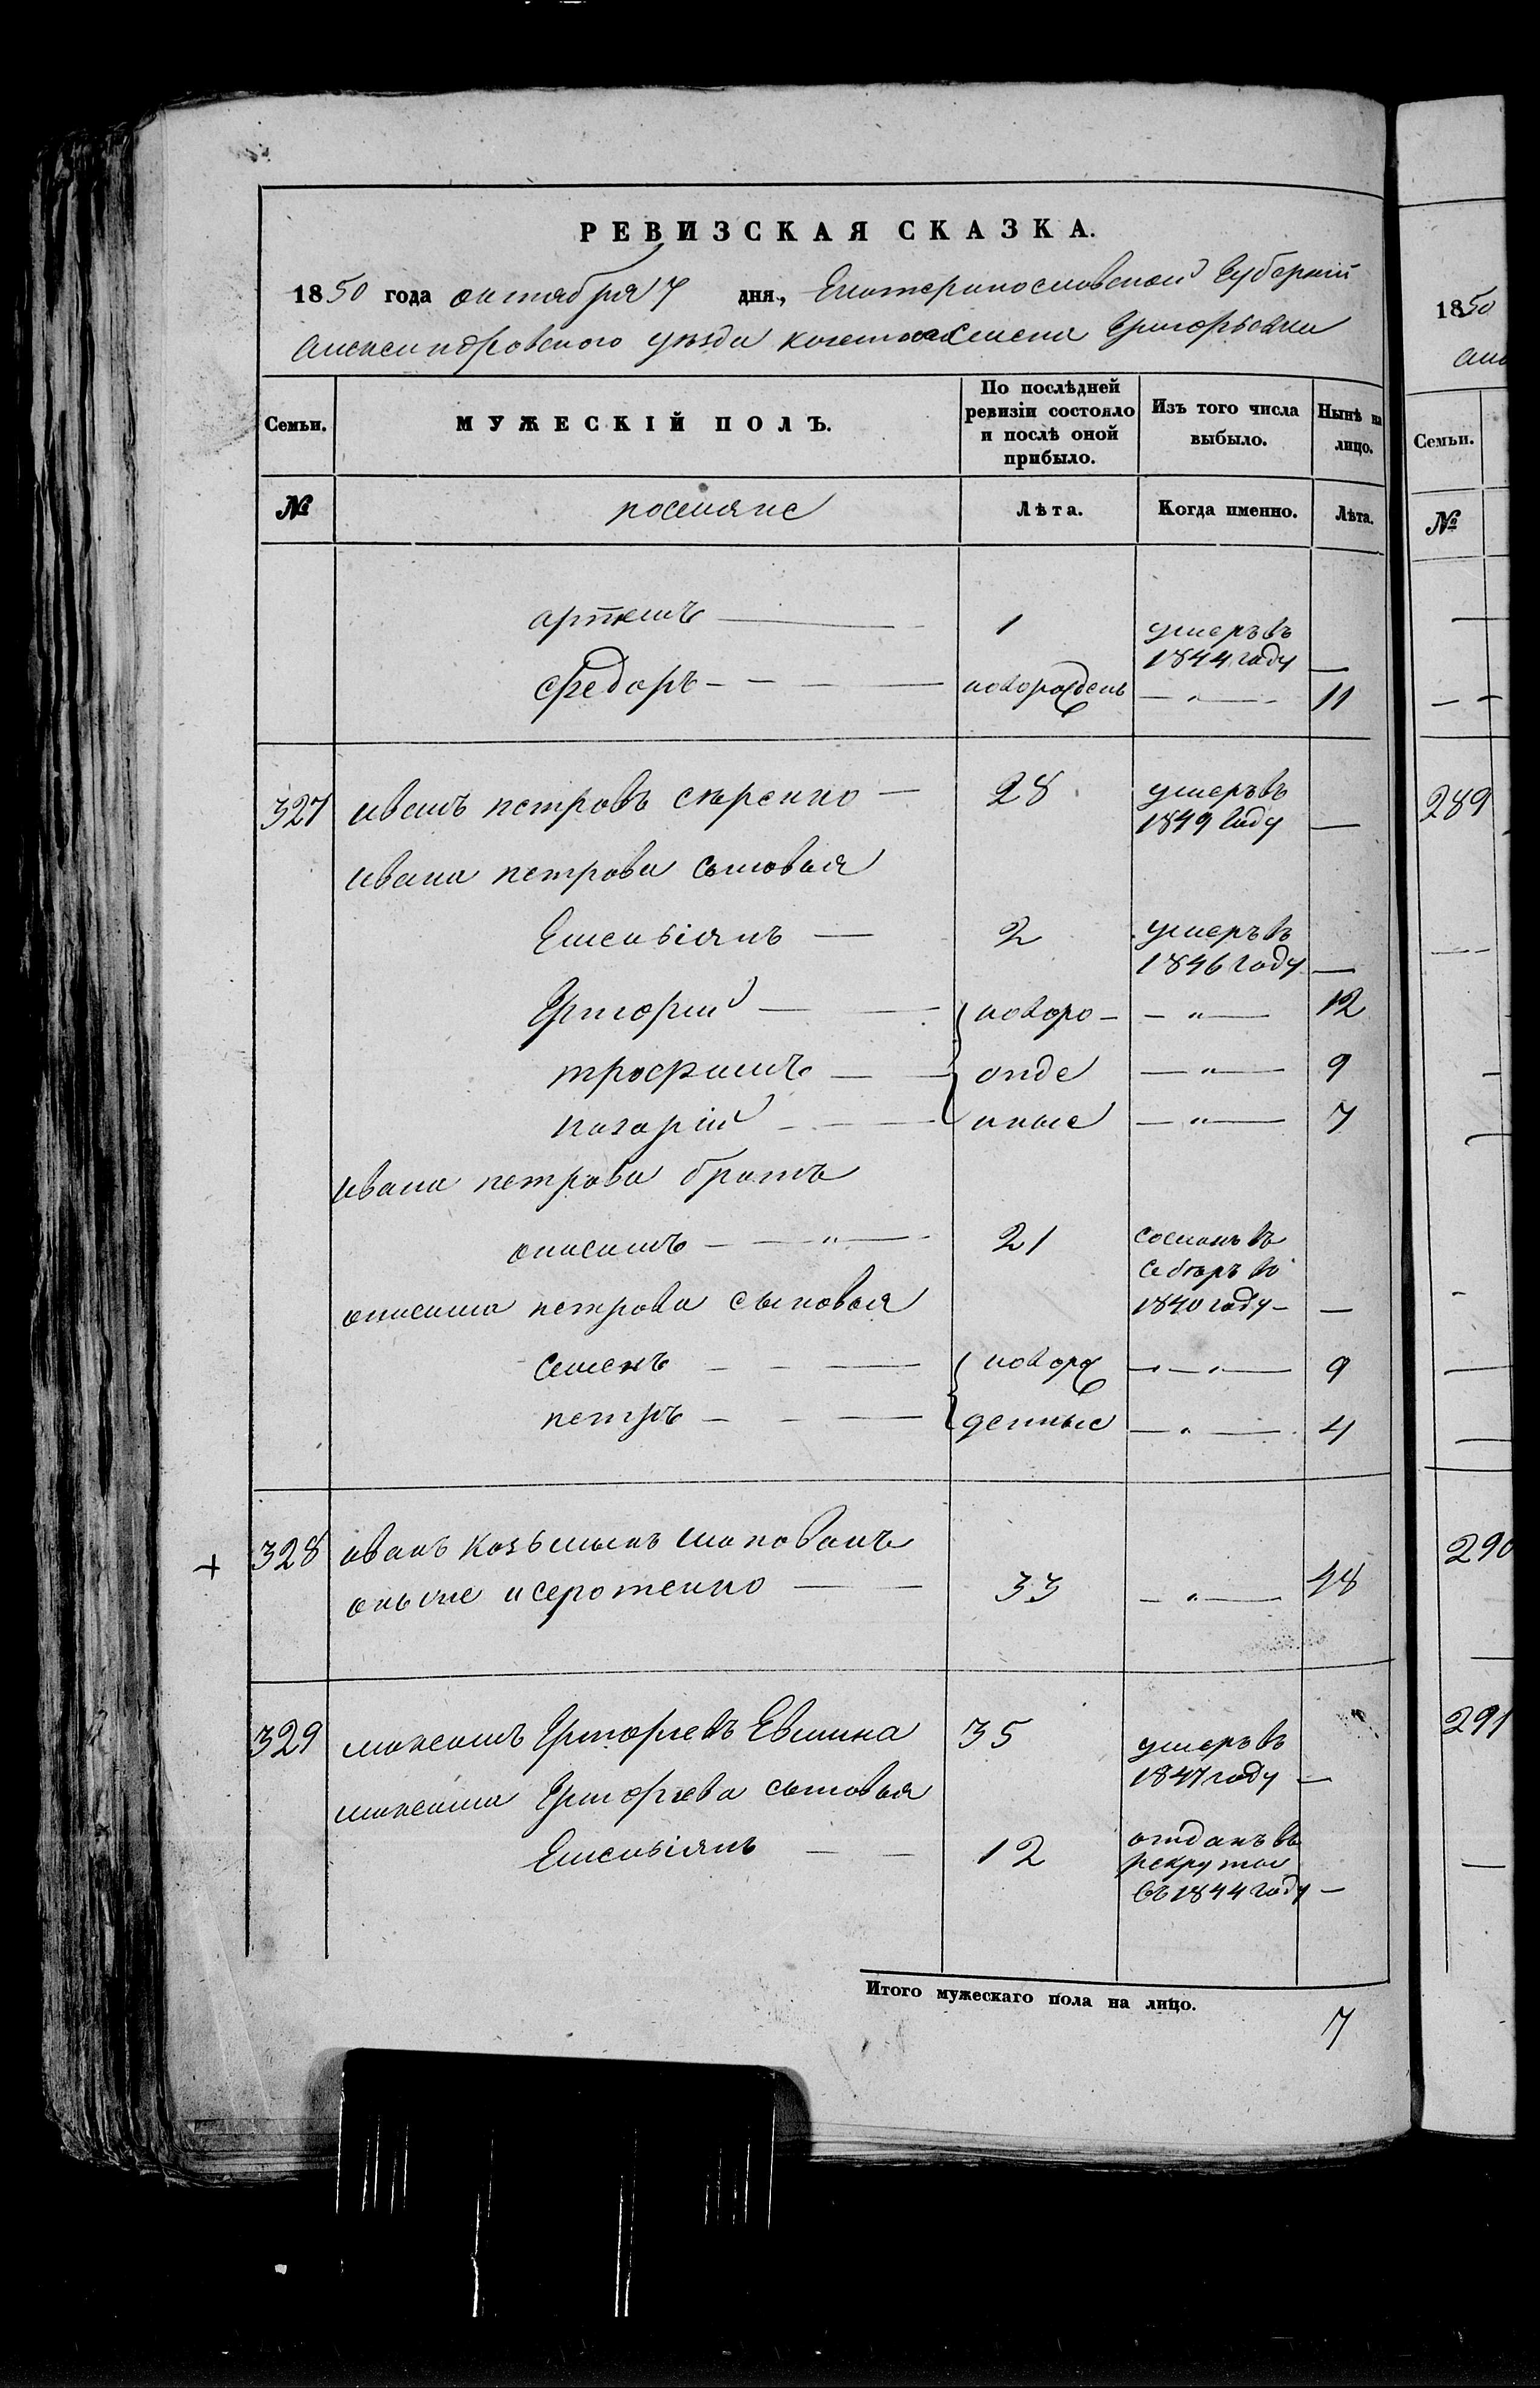 РЕВИЗСКАЯ СКАЗКА.
1850 года октября 7 дня, Екатеринославской Губернии
Александровского уезда Григорьевки
Семьи.
МУЖЕСКІЙ ПОЛЪ.
По послѣдней ревизіи состояло и послѣ оной прибыло.
Изъ того числа выбыло.
Нынѣ на лицо.
№
поселяне
Лѣта.
Когда именно.
Лѣта.
артемъ 1 умеръ въ
1844 году —
федоръ новорожденъ — " — 11
327 иванъ петровъ серенко — 28 умеръ въ
1849 году —
ивана петрова сыновья
Емельіянъ — 2 умеръ въ
1846 году —
Григорий — новоро- — " — 12
трофимъ — жде — " — 9
назарій — нные — " — 7
ивана петрова братъ
анисимъ — " — 21 сосланъ въ
Сибѣръ въ
1840 году — —
анисима петрова сыновья
Семенъ — новорож — " — 9
петръ — денные — " — 4
+ 328 иванъ козьминъ шаповалъ
онъ же исеротенко — 33 — " — 48
329 максимъ Григорьевъ Евмина 35 умеръ въ
1847 году —
максима Григорьева сыновья
Емельіянъ — 12 отданъ въ
рекруты
въ 1844 году —
Итого мужескаго пола на лицо.
7
1850
Семьи.
№
289
290
291